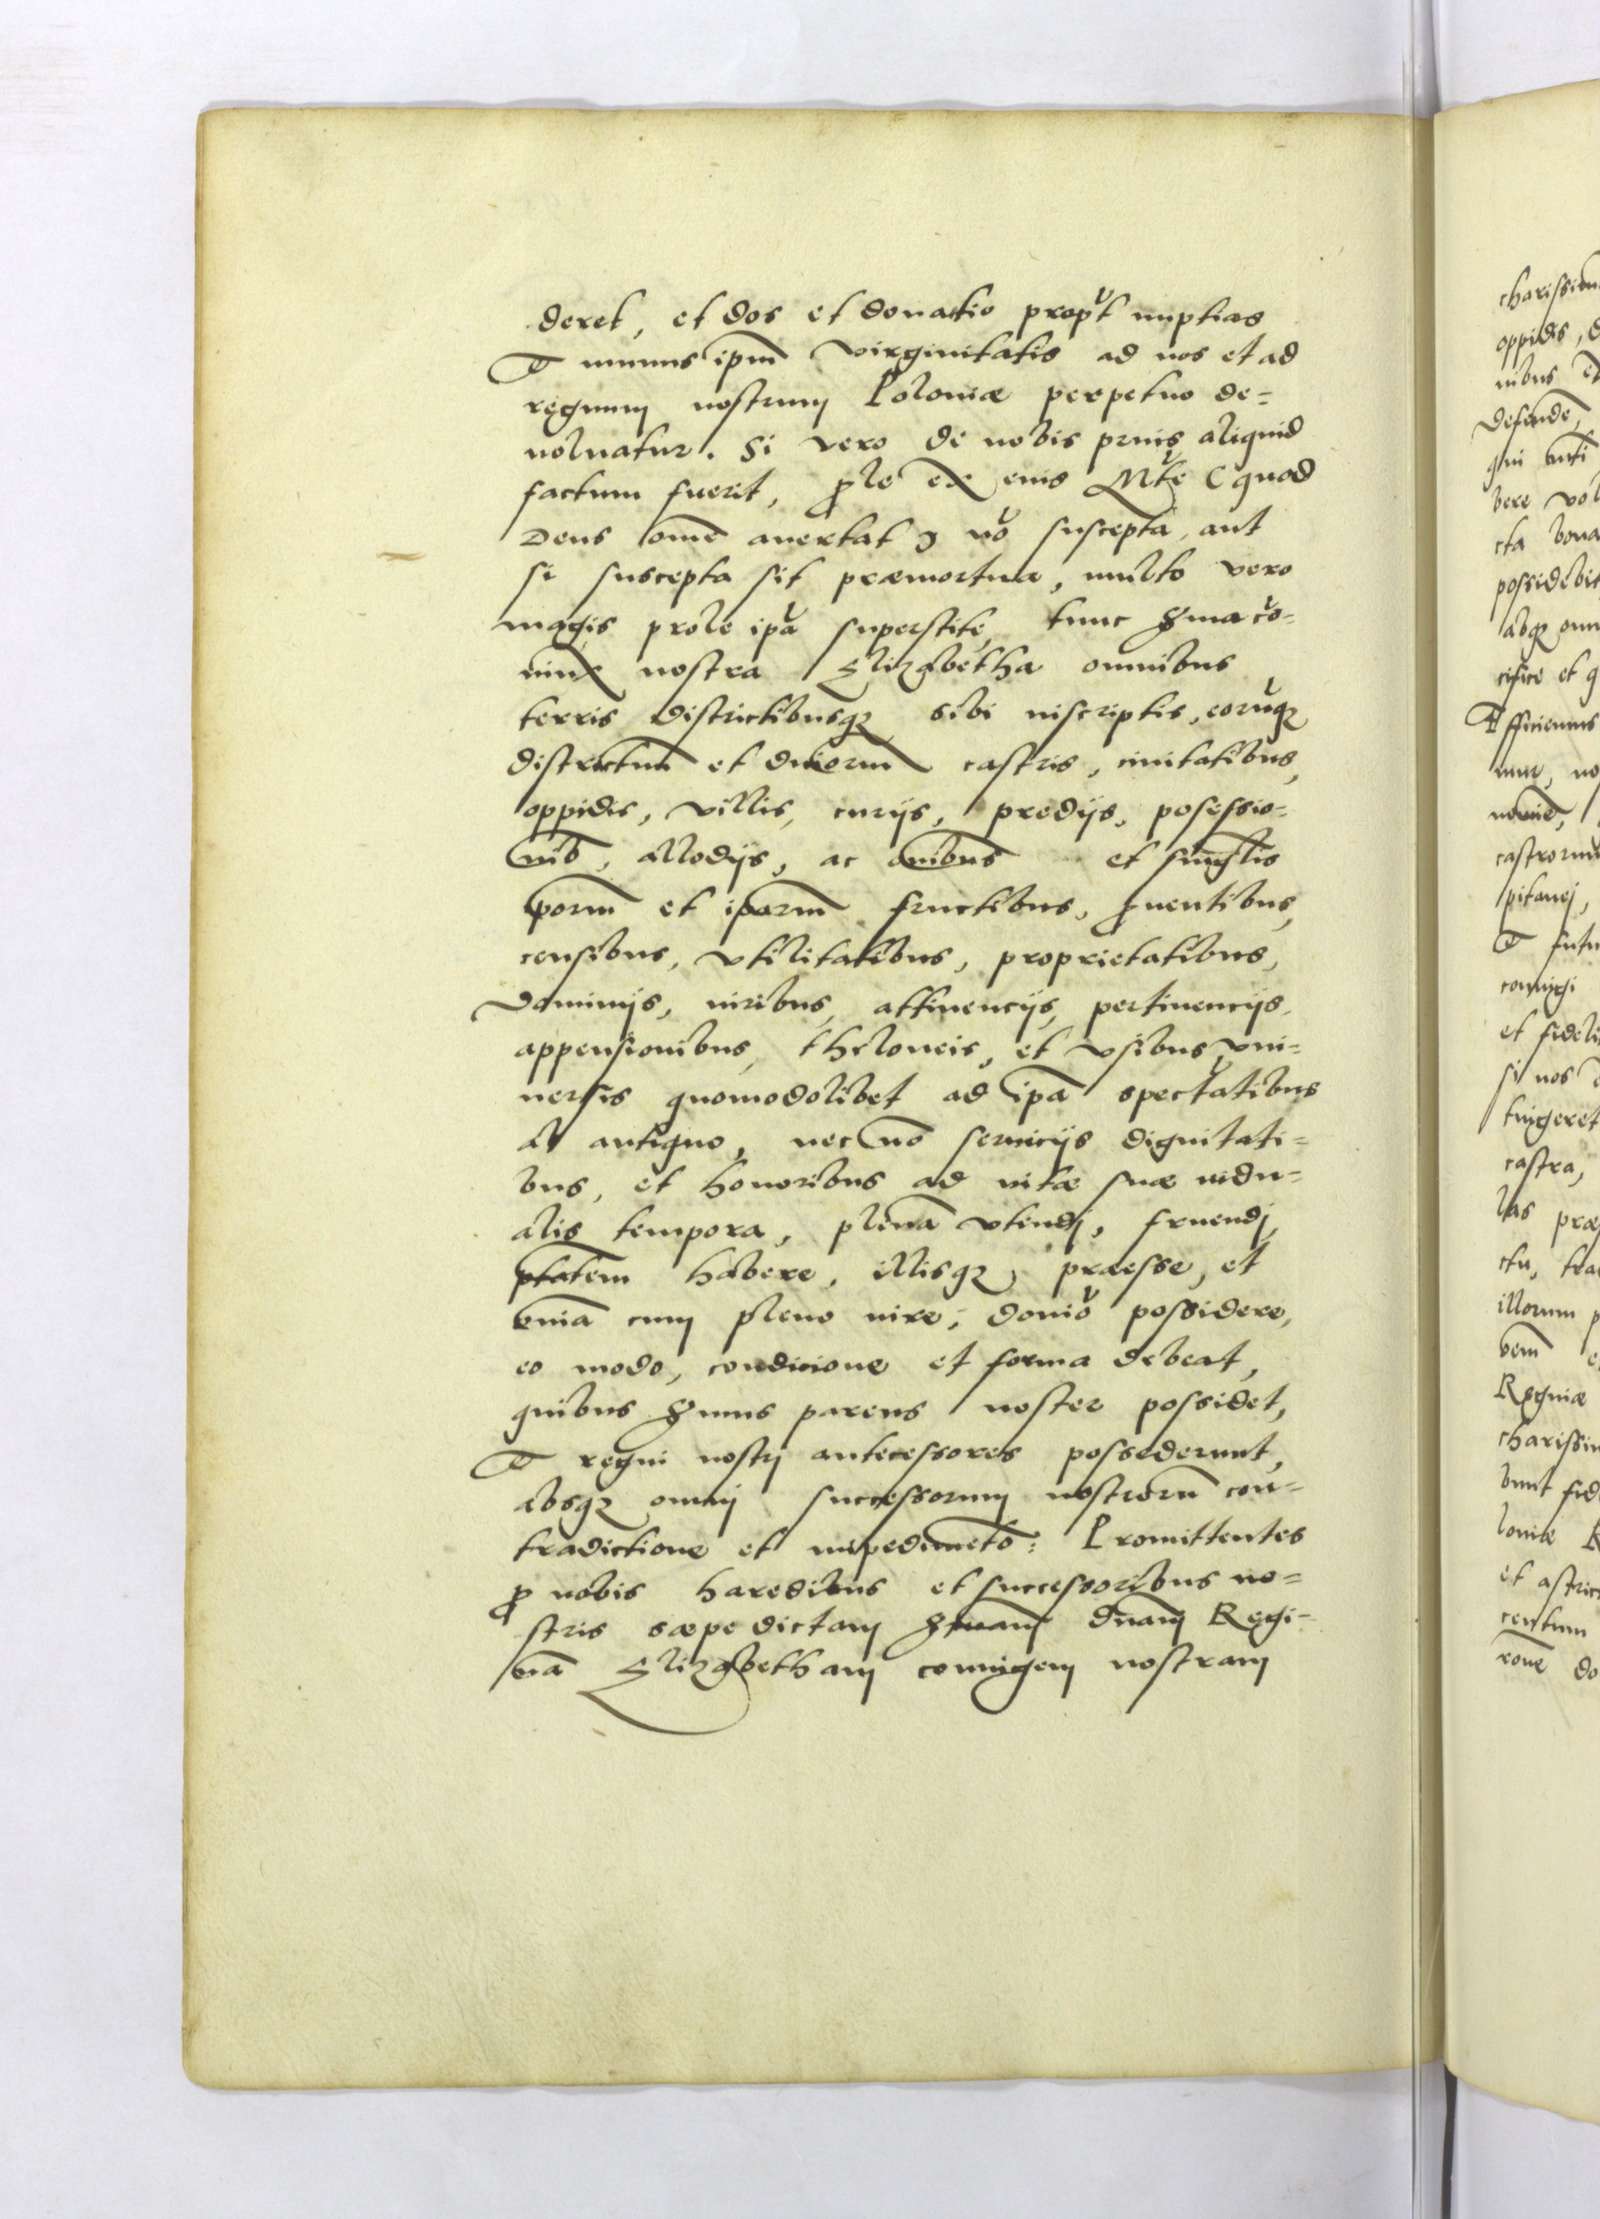 deret, et dos et donatio propt nuptias
Et munus ipm virginitatis ad nos et ad
regnum nostrum Poloniæ perpetuo de=
uoluatur. Si vero de nobis prius aliquid
factum fuerit, ꝓle ex eius Mte (quod
Deus omē auertat) nō suscepta, aut
si suscepta sit præmortua, multo vero
magis prole ipā superstite, tunc Sma cō=
iunx nostra Elizabetha omnibus
terris districtibusqꝫ sibi inscriptis, eorūqꝫ
districtuū et duiorum castris, ciuitatibus,
oppidis, villis, curijs, predijs, posessio=
nib, allodijs, ac oībus et singlis
iporum et iparum fructibus, ꝓuentibus,
censibus, vtilitatibus, proprietatibus,
dominijs, iuribus, attinencijs, pertinencijs,
appensionibus, theloneis, et vsibus vni=
uersis quomodolibet ad ipā spectātibus
ab antiquo, nec nō seruicijs dignitati=
bus, et honoribus ad vitæ suæ vidu=
alis tempora, plenā vtendj, fruendj,
ptatem habere, illisqꝫ præesse, et
vniā cum pleno iure, doniō possidere,
eo modo, condicione et forma debeat,
quibus Smus parens noster possidet,
Et regni nostrj antecessores possederunt,
absqꝫ omnj successorum nostrorū con=
tradictione et impedimēto: Promittentes
ꝓ nobis hæredibus et successoribus no=
stris sæpe dictam Smam dnam Regi=
nā Elizabetham coniugem nostram
charissim
oppidis, d
nibus et
defende,
qui
bere vol
cta bona
possidebit
absqꝫ omn
cifice et q
Efficiemus
mur, no
castrorum
pitanej,
Et futu
coniugi
et fideli
si nos
tingeret
castra,
las præ
ctu, tra
illorum p
Reginæ
charissim
bunt fid
loniæ R
et astric
centum
rone do